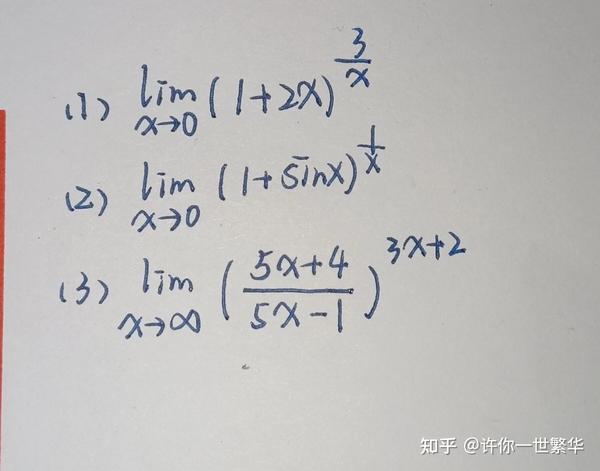 (1) lim x→0 (1+2x)^(3/x)
(2) lim x→0 (1+sinx)^(1/x)
(3) lim x→∞ ((5x+4)/(5x-1))^(3x+2)
知乎 @许你一世繁华